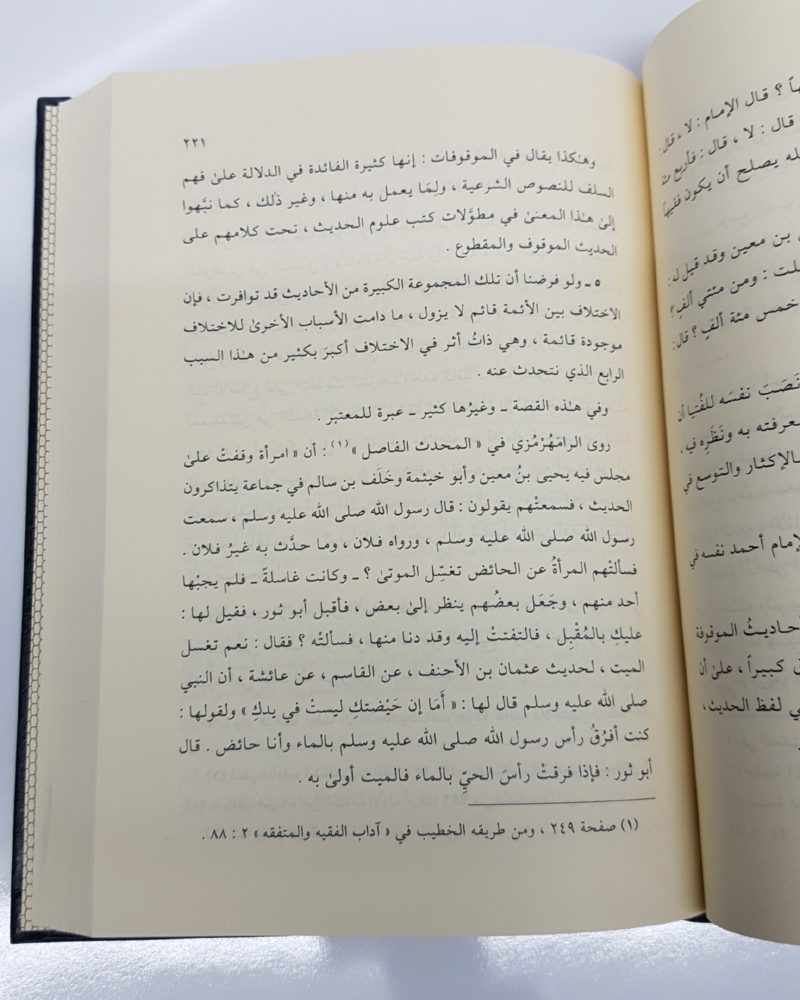 هاً ؟ قال الإمام : لا ، قال :
قال : لا ، قال : فأربع مئة
له يصلح أن يكون فقيهاً
بن معين وقد قيل له :
لت : ومن مئتي ألفٍ ؟
خمس مئة ألفٍ ؟ قال :
نَصَبَ نفسَه للفُتيا أن
معرفته به ونَظَرِه فيه ،
بالإكثار والتوسع في
لإمام أحمد نفسه في
أحاديثُ الموقوفة
كبيراً ، علىٰ أن
ي لفظ الحديث ،
٢٢١
وهـٰكذا يقال في الموقوفات : إنها كثيرة الفائدة في الدلالة علىٰ فهم
السلف للنصوص الشرعية ، ولِمَا يعمل به منها ، وغير ذٰلك ، كما نبَّهوا
إلىٰ هـٰذا المعنىٰ في مطوَّلات كتب علوم الحديث ، تحت كلامهم على
الحديث الموقوف والمقطوع .
٥ ـ ولو فرضنا أن تلك المجموعة الكبيرة من الأحاديث قد توافرت ، فإن
الاختلاف بين الأئمة قائم لا يزول ، ما دامت الأسباب الأخرىٰ للاختلاف
موجودة قائمة ، وهي ذاتُ أثر في الاختلاف أكبرَ بكثير من هـٰذا السبب
الرابع الذي نتحدث عنه .
وفي هـٰذه القصة ـ وغيرُها كثير ـ عبرة للمعتبر .
روى الرامَهُرْمُزي في « المحدث الفاصل »(١) : أن « امرأة وقفتْ علىٰ
مجلس فيه يحيى بنُ معين وأبو خيثمة وخَلَف بن سالم في جماعة يتذاكرون
الحديث ، فسمعتْهم يقولون : قال رسول الله صلى الله عليه وسلم ، سمعت
رسول الله صلى الله عليه وسلم ، ورواه فلان ، وما حدَّث به غيرُ فلان .
فسألتْهم المرأةُ عن الحائض تغسِّل الموتىٰ ؟ ـ وكانت غاسلةً ـ فلم يجبْها
أحد منهم ، وجَعَل بعضُهم ينظر إلىٰ بعض ، فأقبل أبو ثور ، فقيل لها :
عليكِ بالمُقْبِل ، فالتفتتْ إليه وقد دنا منها ، فسألتْه ؟ فقال : نعم تغسل
الميت ، لحديث عثمان بن الأحنف ، عن القاسم ، عن عائشة ، أن النبي
صلى الله عليه وسلم قال لها : « أَمَا إن حَيْضتكِ ليستْ في يدكِ » ولقولها :
كنت أفرُقُ رأس رسول الله صلى الله عليه وسلم بالماء وأنا حائض . قال
أبو ثور : فإذا فرقتْ رأسَ الحيِّ بالماء فالميت أولىٰ به .
(١) صفحة ٢٤٩ ، ومن طريقه الخطيب في « آداب الفقيه والمتفقه » ٢ : ٨٨ .